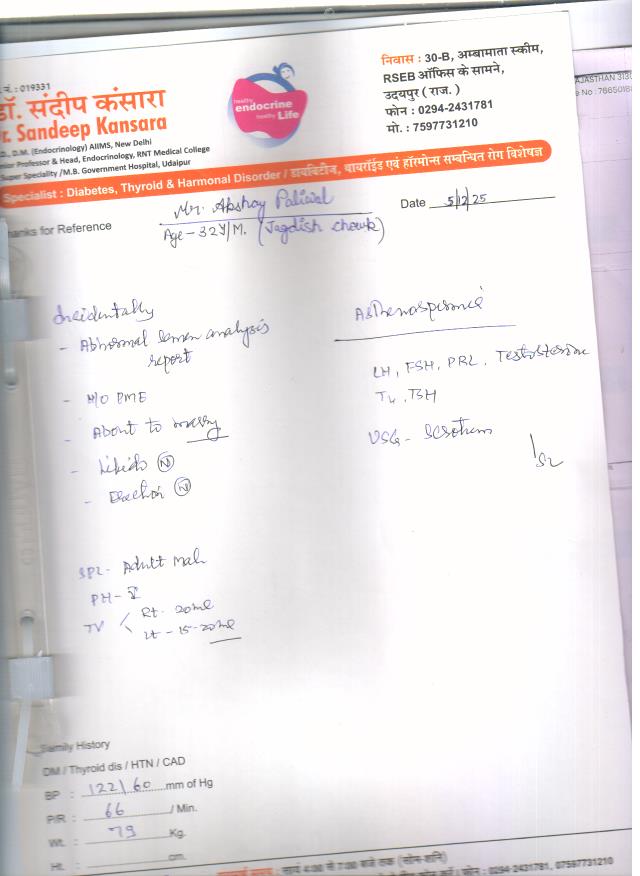 नं. : 019331
डॉ. संदीप कंसारा
r. Sandeep Kansara
D., D.M. (Endocrinology) AIIMS, New Delhi
Professor & Head, Endocrinology, RNT Medical College
Super Speciality /M.B. Government Hospital, Udaipur
healthy
endocrine
healthy Life
निवास : 30-B, अम्बामाता स्कीम,
RSEB ऑफिस के सामने,
उदयपुर ( राज. )
फोन : 0294-2431781
मो. : 7597731210
AJASTHAN 313
e No : 7665018
Specialist : Diabetes, Thyroid & Harmonal Disorder / डायबिटीज, थायरॉईड एवं हॉरमोन्स सम्बन्धित रोग विशेषज्ञ
hanks for Reference
Mr. Akshay Paliwal
Age - 32Y/M. (Jagdish chowk)
Date 5/12/25
Incidentally
- Abnormal semen analysis
report
- H/O PME
- About to marry
- Libido (N)
- Erection (N)
Asthenospermia
LH, FSH, PRL, Testosterone
T4, TSH
USG - Scrotum
SPL - Adult male
PH - V
TV < Rt. 20ml
Lt - 15-20ml
Family History
DM / Thyroid dis / HTN / CAD
BP : 122/60 mm of Hg
P/R : 66 / Min.
Wt. : 79 Kg.
Ht. : cm.
सायं 4:00 से 7:00 बजे तक (सोम-शनि)
फोन : 0294-2431781, 07597731210